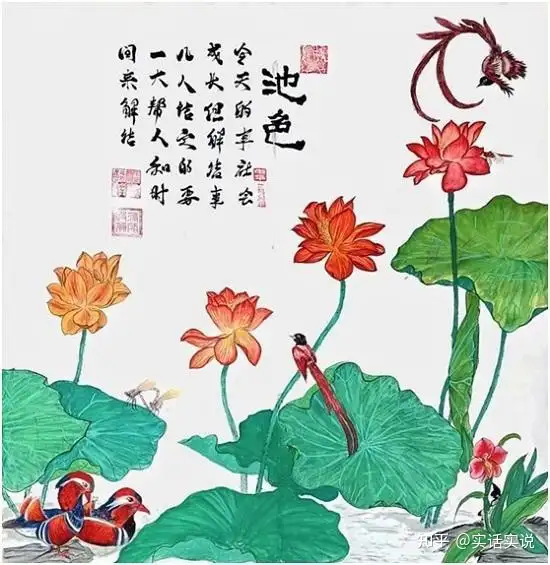 池色
今天的事社会
或大但解结事
几人结定的要
一大帮人和时
间来解结
知乎 @实话实说